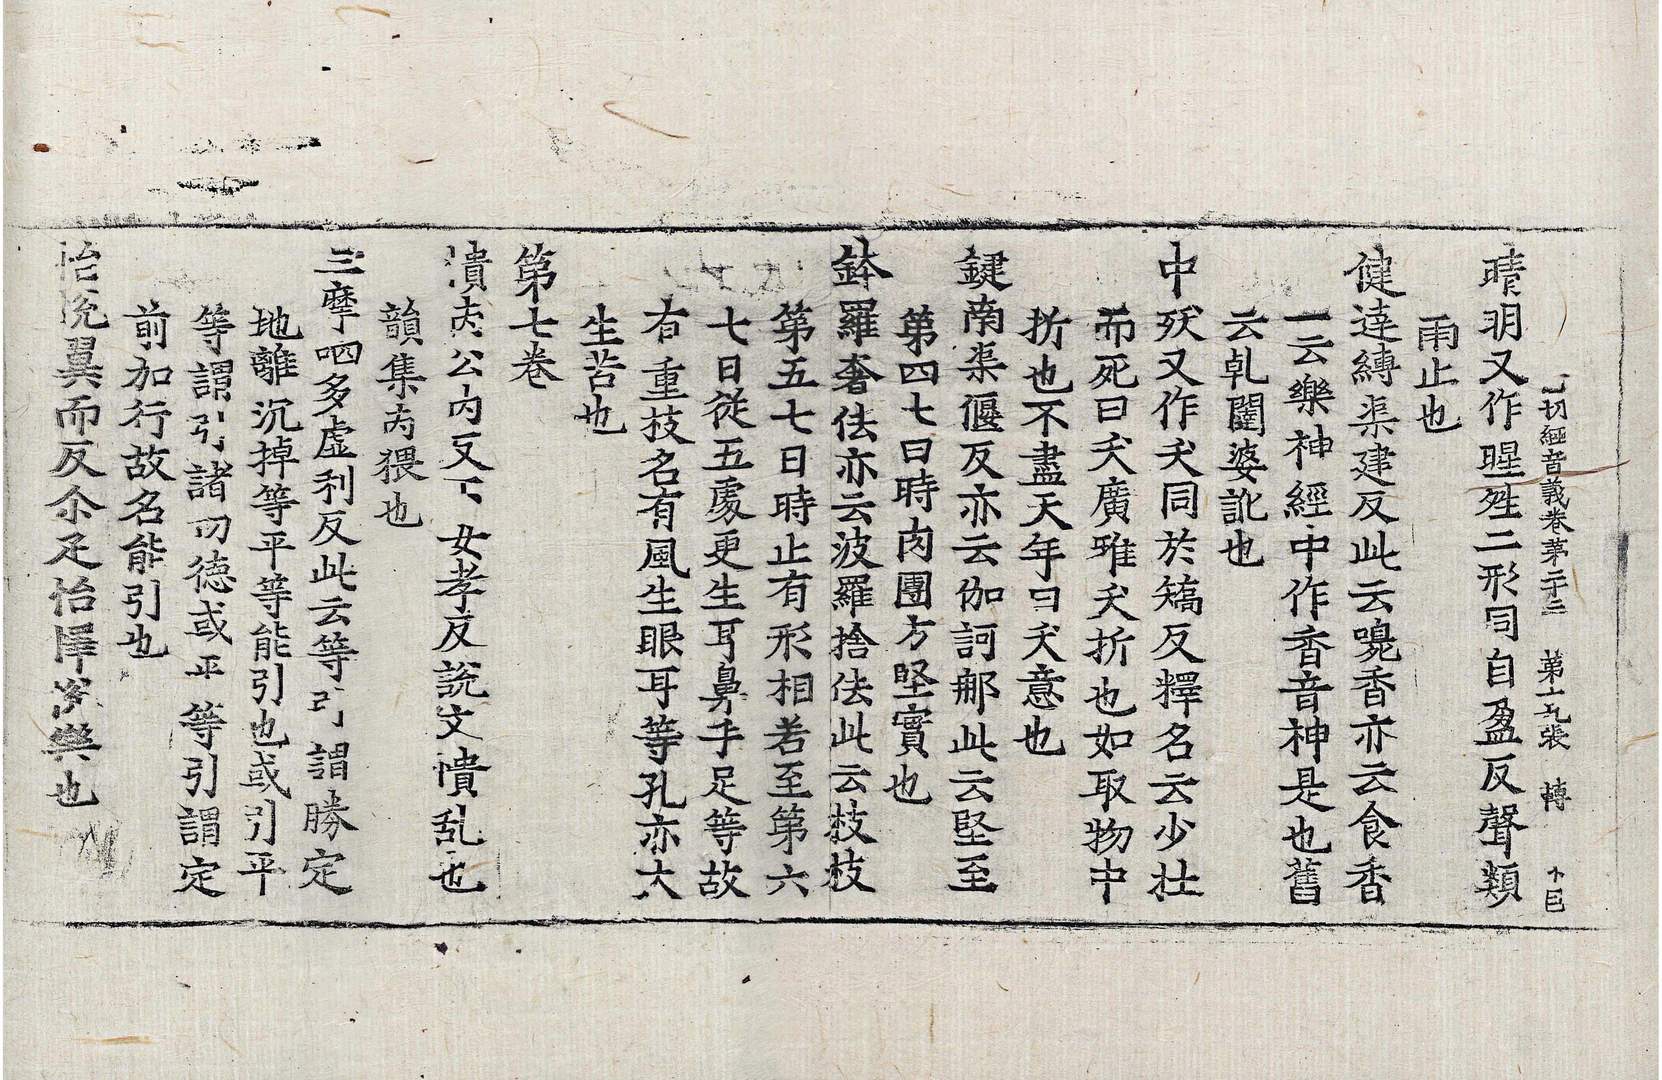 一切經音義卷第二十三 第十九張 轉
晴明又作暒殅二形同自盈反聲類
雨止也
健達縛渠建反此云㝹香亦云食香
一云樂神經中作香音神是也舊
云乹闥婆訛也
中殀又作夭同於矯反釋名云少壯
而死曰夭廣雅夭折也如取物中
折也不盡天年曰夭意也
鍵南渠偃反亦云伽訶郍此云堅至
第四七日時肉團方堅實也
鉢羅奢佉亦云波羅捨佉此云枝枝
第五七日時止有形相若至第六
七日從五處更生耳鼻手足等故
有重枝名有風生眼耳等孔亦大
生苦也
第七卷
憒丙公內反下女孝反說文憒乱也
韻集丙猥也
三摩呬多虛利反此云等引謂勝定
地離沉掉等平等能引也或引平
等謂引諸功德或平等引謂定
前加行故名能引也
怡悅翼而反尒疋怡懌樂也